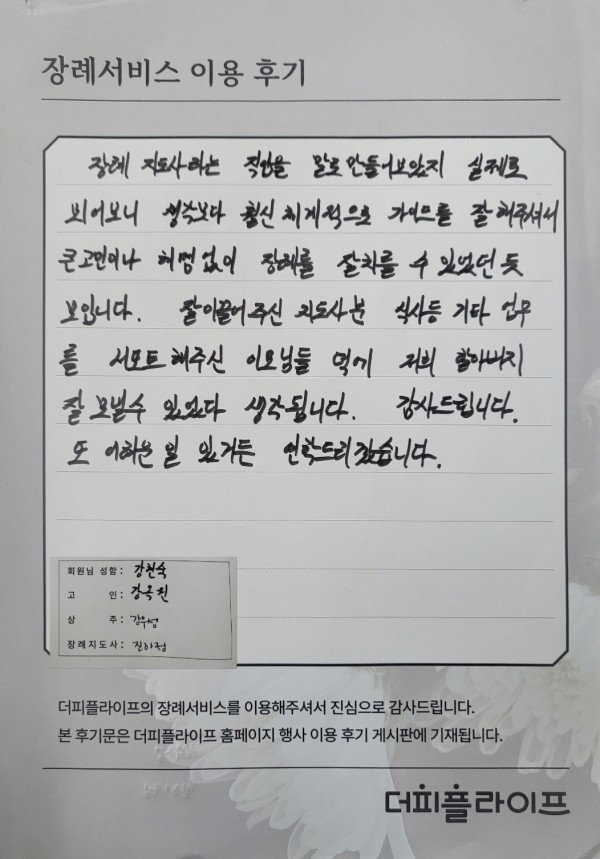 장례서비스 이용 후기
장례 지도사라는 직업을 말로만들어보았지 실제로
뵈어보니 생각보다 훨신 체계적으로 가이드를 잘 해주셔서
큰고민이나 헤멤없이 장례를 잘치를 수 있었던 듯
보입니다. 잘이끌어주신 지도사분 식사등 기타 업무
를 서포트해주신 이모님들 덕에 저희 할아버지
잘 보낼수 있었다 생각됩니다. 감사드립니다.
또 어려운 일 있거든 연락드리겠습니다.
회원님 성함 : 강현숙
고 인 : 강옥진
상 주 :
장례지도사 :
더피플라이프의 장례서비스를 이용해주셔서 진심으로 감사드립니다.
본 후기문은 더피플라이프 홈페이지 행사 이용 후기 게시판에 기재됩니다.
더피플라이프